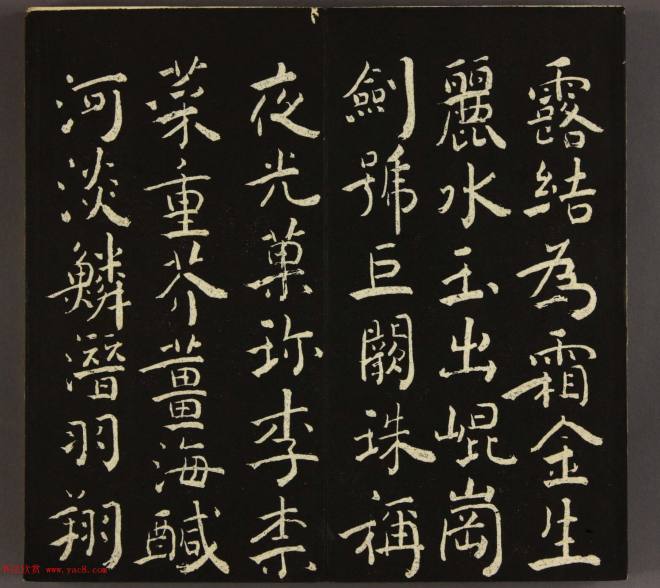 露結為霜金生
麗水玉出崐崗
劍號巨闕珠稱
夜光菓珎李柰
菜重芥薑海醎
河淡鱗潛羽翔
www.yac8.com